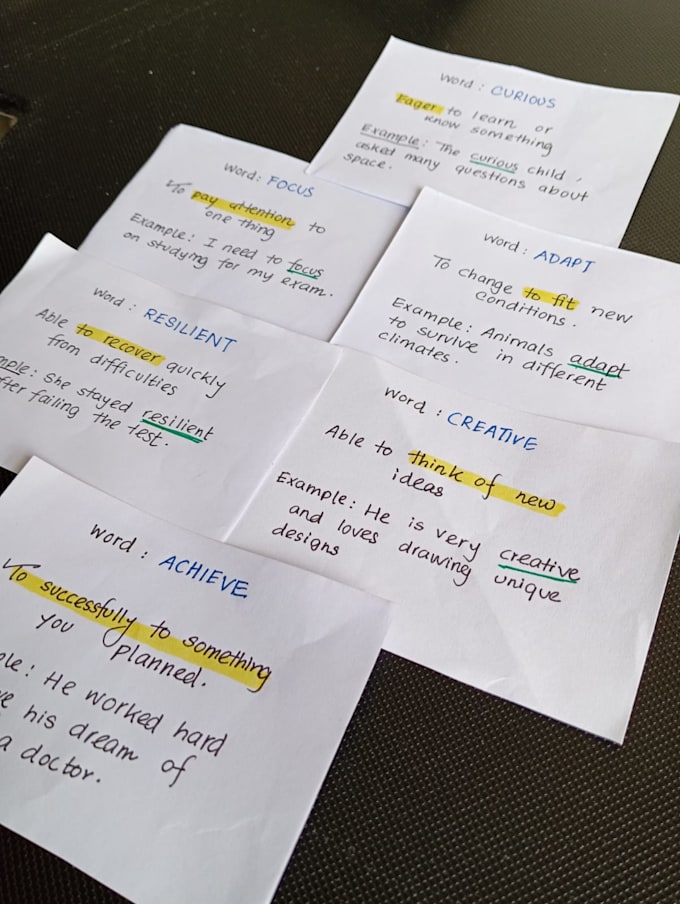 Word : CURIOUS
Eager to learn or
know something
Example : The curious child,
asked many questions about
space.
Word : FOCUS
To pay attention to
one thing
Example : I need to focus
on studying for my exam.
Word : ADAPT
To change to fit new
conditions.
Example : Animals adapt
to survive in different
climates.
Word : RESILIENT
Able to recover quickly
from difficulties
mple : She stayed resilient
fter failing the test.
Word : CREATIVE
Able to think of new
ideas
Example : He is very creative
and loves drawing unique
designs
Word : ACHIEVE
To successfully to something
you planned.
ple : He worked hard
ve his dream of
a doctor.